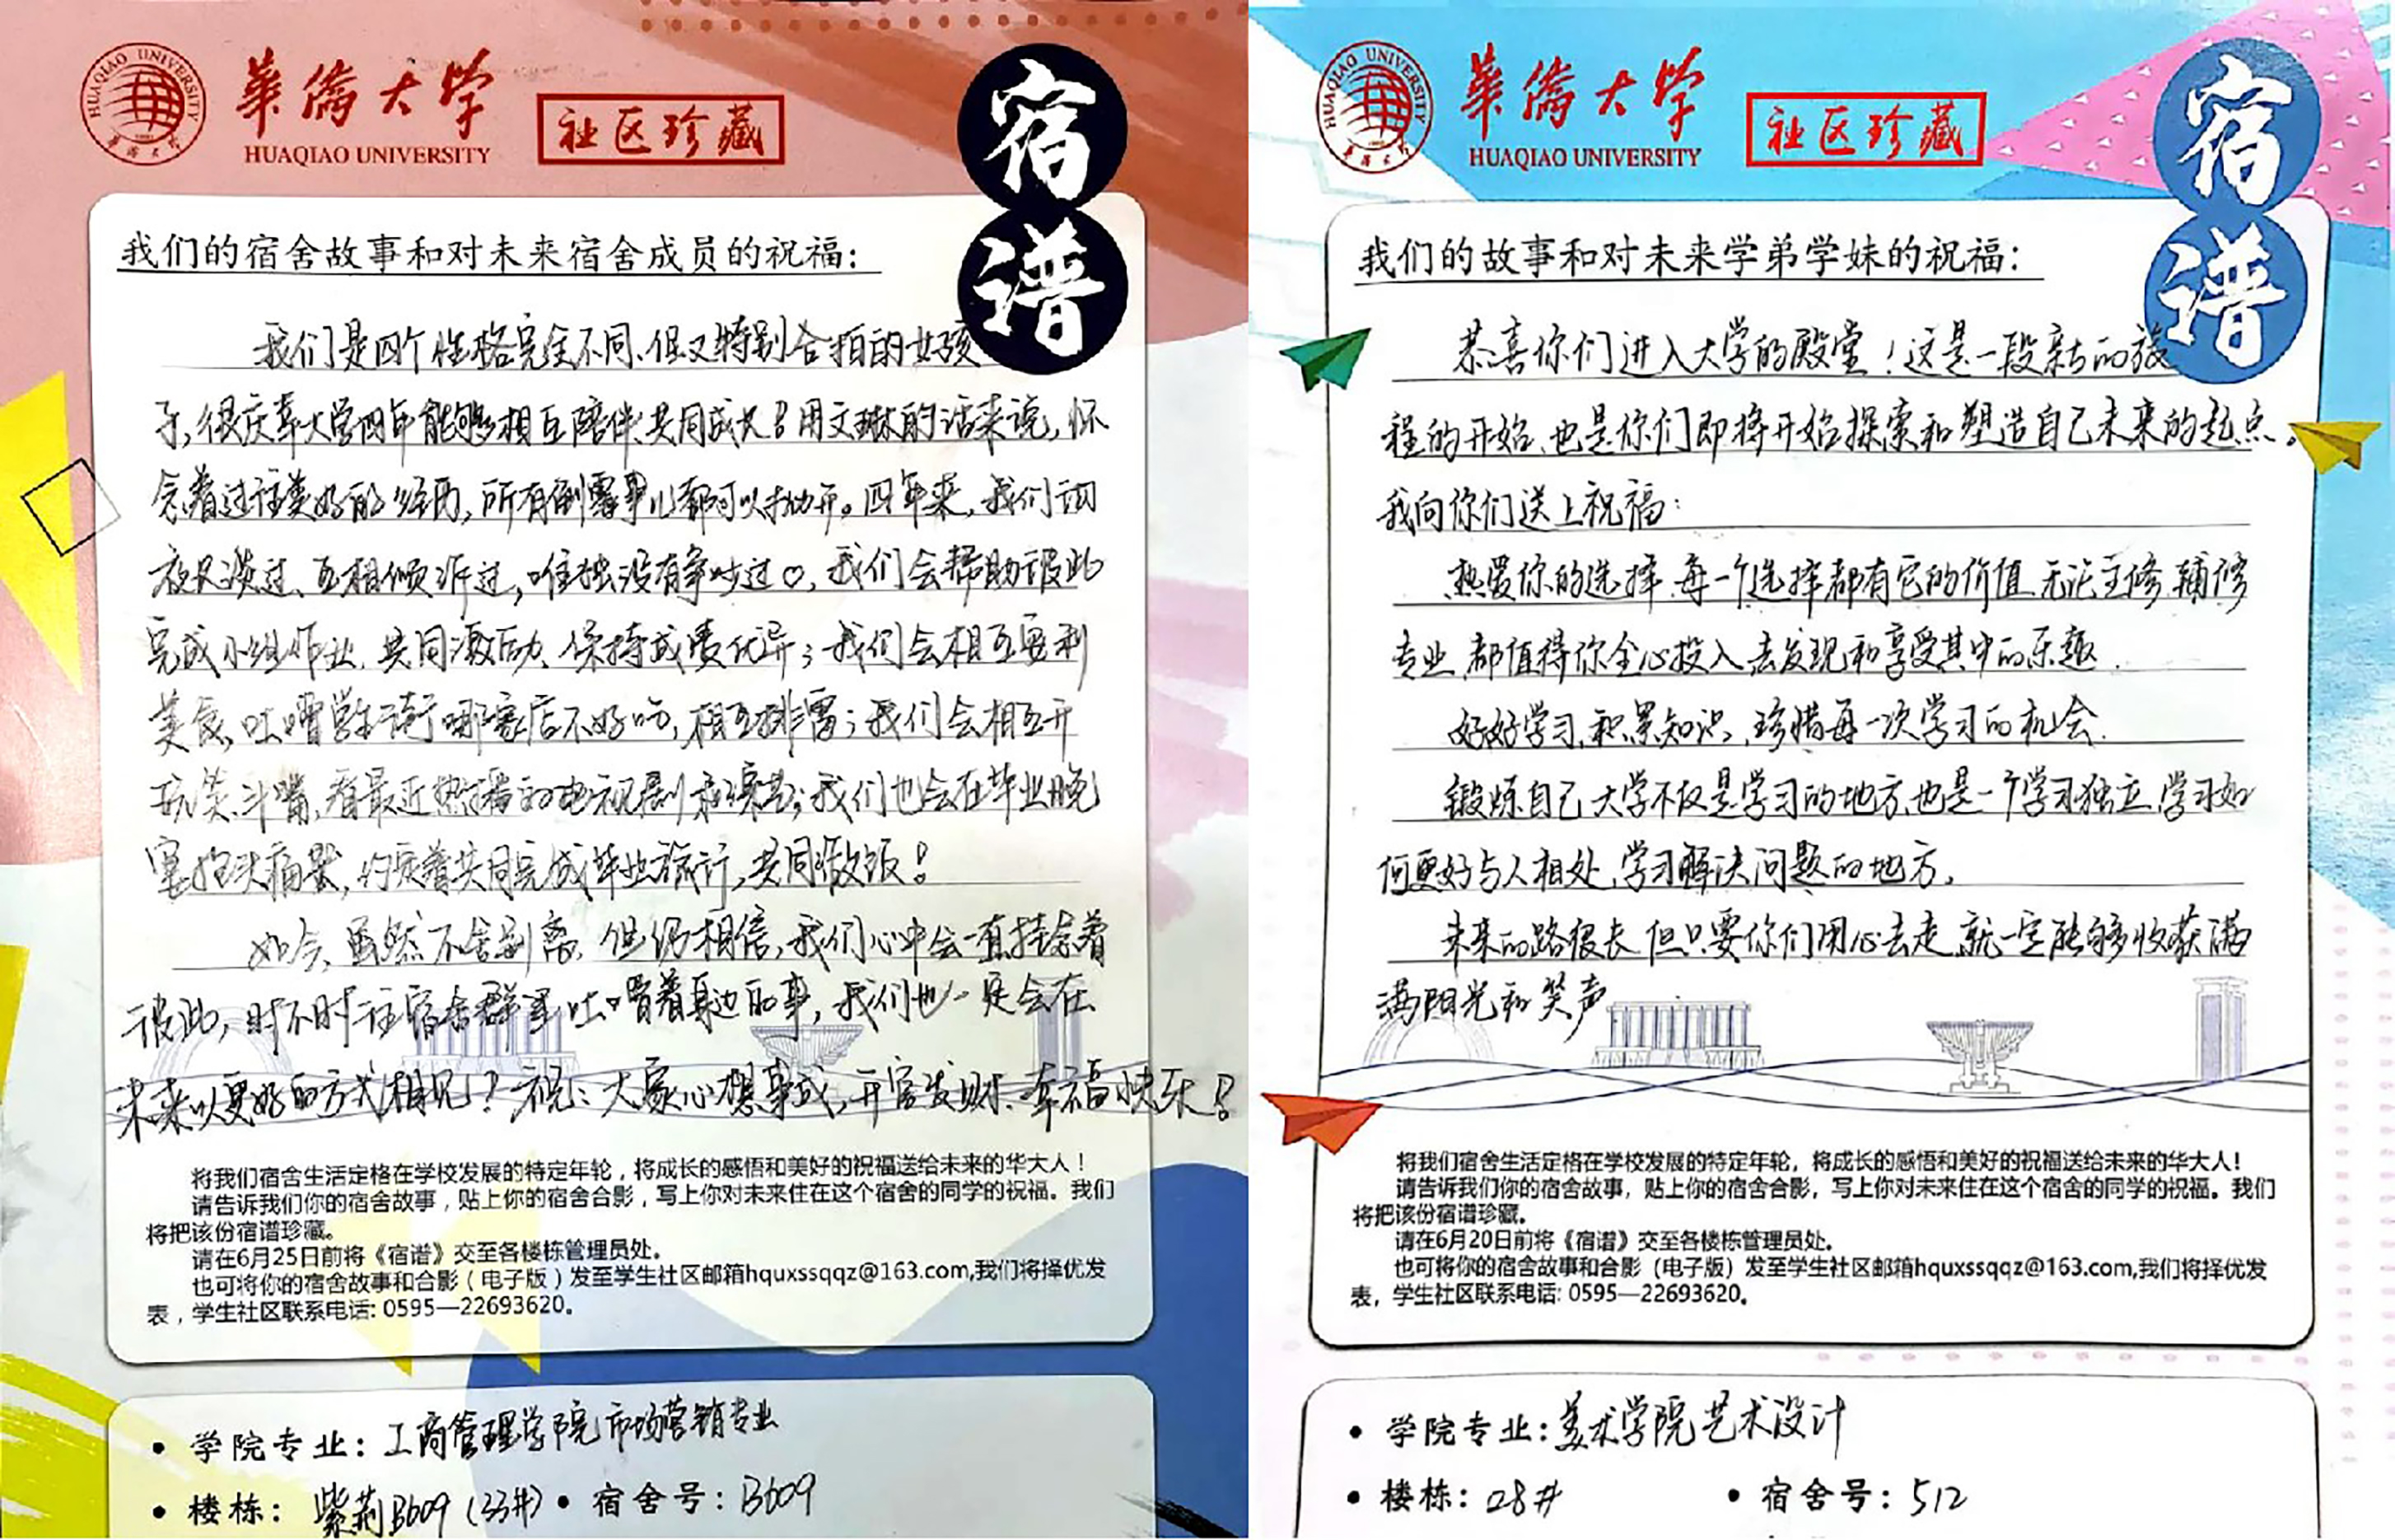 HUAQIAO UNIVERSITY
華僑大学
華僑大学
HUAQIAO UNIVERSITY
社区珍藏
宿谱
我们的宿舍故事和对未来宿舍成员的祝福：
我们是四个性格完全不同、但又特别合拍的女孩
子，很庆幸大学四年能够相互陪伴、共同成长！用文琳的话来说，怀
念着过往美好的经历，所有倒霉事儿都可以抛开。四年来，我们
夜谈过、互相倾诉过，唯独没有争吵过♡，我们会帮助彼此
完成小组作业、共同激励、保持成绩优异；我们会相互安利
美食，吐嘈学生街哪家店不好吃，相互排雷；我们会相互开
玩笑、斗嘴，看最近热播的电视剧和综艺；我们也会在毕业晚
宴抱头痛哭，约定着共同完成毕业旅行，共同做饭！
如今，虽然不舍别离，但仍相信，我们心中会一直挂念着
彼此，时不时在宿舍群里吐嘈着身边的事，我们也一定会在
未来以更好的方式相见！祝：大家心想事成，开心发财、幸福快乐！
将我们宿舍生活定格在学校发展的特定年轮，将成长的感悟和美好的祝福送给未来的华大人！
请告诉我们你的宿舍故事，贴上你的宿舍合影，写上你对未来住在这个宿舍的同学的祝福。我们
将把该份宿谱珍藏。
请在6月25日前将《宿谱》交至各楼栋管理员处。
也可将你的宿舍故事和合影（电子版）发至学生社区邮箱hquxssqqz@163.com,我们将择优发
表，学生社区联系电话: 0595—22693620。
• 学院专业：工商管理学院市场营销专业
• 楼栋：紫荆B609（33#） • 宿舍号：B609
HUAQIAO UNIVERSITY
華僑大学
華僑大学
HUAQIAO UNIVERSITY
社区珍藏
宿谱
我们的故事和对未来学弟学妹的祝福：
恭喜你们进入大学的殿堂！这是一段新的旅
程的开始，也是你们即将开始探索和塑造自己未来的起点。
我向你们送上祝福：
热爱你的选择，每一个选择都有它的价值，无论主修、辅修
专业，都值得你全心投入，去发现和享受其中的乐趣．
好好学习，积累知识，珍惜每一次学习的机会．
锻炼自己，大学不仅是学习的地方，也是一个学习独立，学习如
何更好与人相处，学习解决问题的地方。
未来的路很长，但只要你们用心去走，就一定能够收获满
满阳光和笑声
将我们宿舍生活定格在学校发展的特定年轮，将成长的感悟和美好的祝福送给未来的华大人！
请告诉我们你的宿舍故事，贴上你的宿舍合影，写上你对未来住在这个宿舍的同学的祝福。我们
将把该份宿谱珍藏。
请在6月20日前将《宿谱》交至各楼栋管理员处。
也可将你的宿舍故事和合影（电子版）发至学生社区邮箱hquxssqqz@163.com,我们将择优发
表，学生社区联系电话: 0595—22693620。
• 学院专业：美术学院艺术设计
• 楼栋：28# • 宿舍号：512